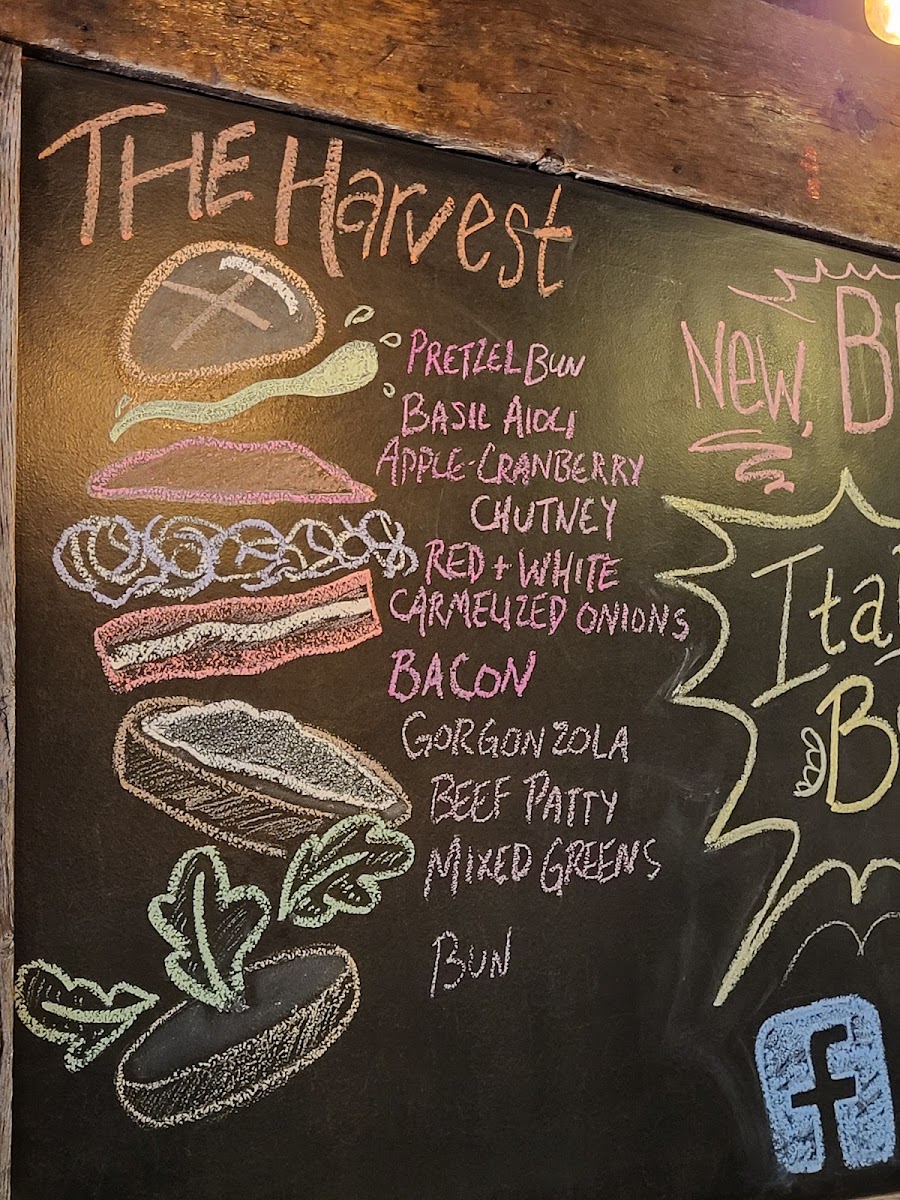 THE Harvest
PRETZEL BUN
BASIL AIOLI
APPLE-CRANBERRY
CHUTNEY
RED + WHITE
CARMELIZED ONIONS
BACON
GORGONZOLA
BEEF PATTY
MIXED GREENS
BUN
New,
f